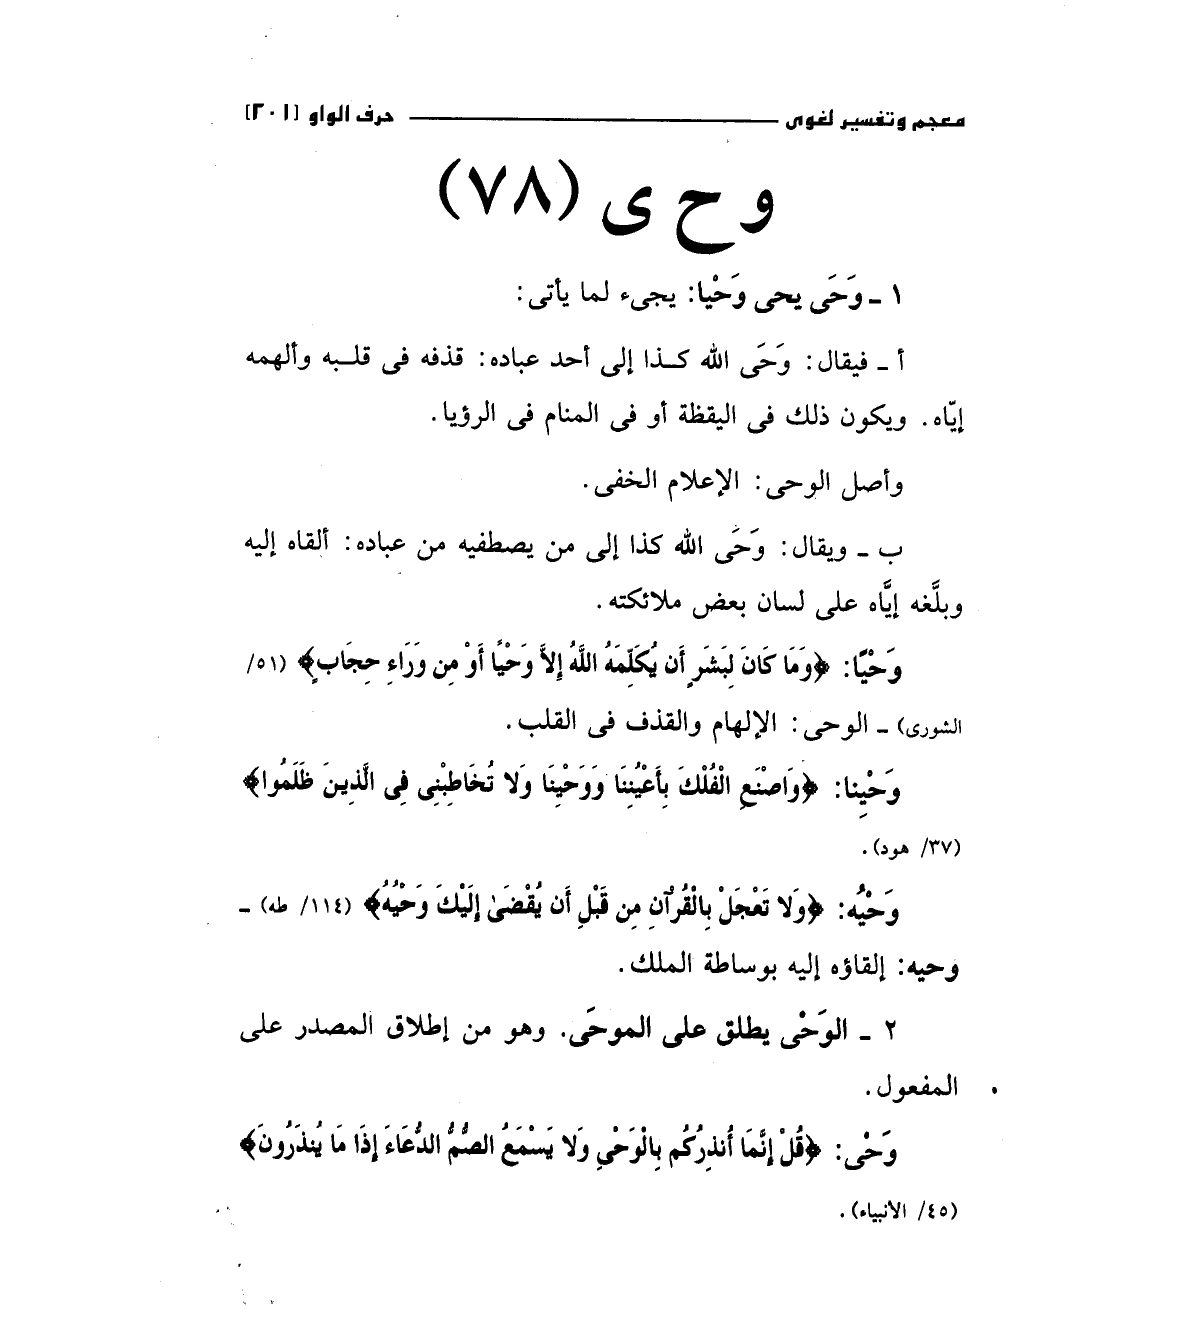 معجم وتفسير لغوى ــــــــــ حرف الواو [٢٠١]
و ح ى (٧٨)
١ ـ وَحَى يحى وَحْيا: يجىء لما يأتى:
أ ـ فيقال: وَحَى الله كـذا إلى أحد عباده: قذفه فى قلـبه وألهمه
إيّاه. ويكون ذلك فى اليقظة أو فى المنام فى الرؤيا.
وأصل الوحى: الإعلام الخفى.
ب ـ ويقال: وَحَى الله كذا إلى من يصطفيه من عباده: ألقاه إليه
وبلَّغه إيَّاه على لسان بعض ملائكته.
وَحْيًا: ﴿وَمَا كَانَ لِبَشَرٍ أَن يُكَلِّمَهُ اللَّهُ إِلاَّ وَحْيًا أَوْ مِن وَرَاءِ حِجَابٍ﴾ (٥١/
الشورى) ـ الوحى: الإلهام والقذف فى القلب.
وَحْيِنا: ﴿وَاصْنَعِ الْفُلْكَ بِأَعْيُنِنَا وَوَحْيِنَا وَلا تُخَاطِبْنِى فِى الَّذِينَ ظَلَمُوا﴾
(٣٧/ هود).
وَحْيُه: ﴿وَلا تَعْجَلْ بِالْقُرْآنِ مِن قَبْلِ أَن يُقْضَىٰ إِلَيْكَ وَحْيُهُ﴾ (١١٤/ طه) ـ
وحيه: إلقاؤه إليه بوساطة الملك.
٢ ـ الوَحْى يطلق على الموحَى. وهو من إطلاق المصدر على
المفعول.
وَحْى: ﴿قُلْ إِنَّمَا أُنذِرُكُم بِالْوَحْىِ وَلا يَسْمَعُ الصُّمُّ الدُّعَاءَ إِذَا مَا يُنذَرُونَ﴾
(٤٥/ الأنبياء).